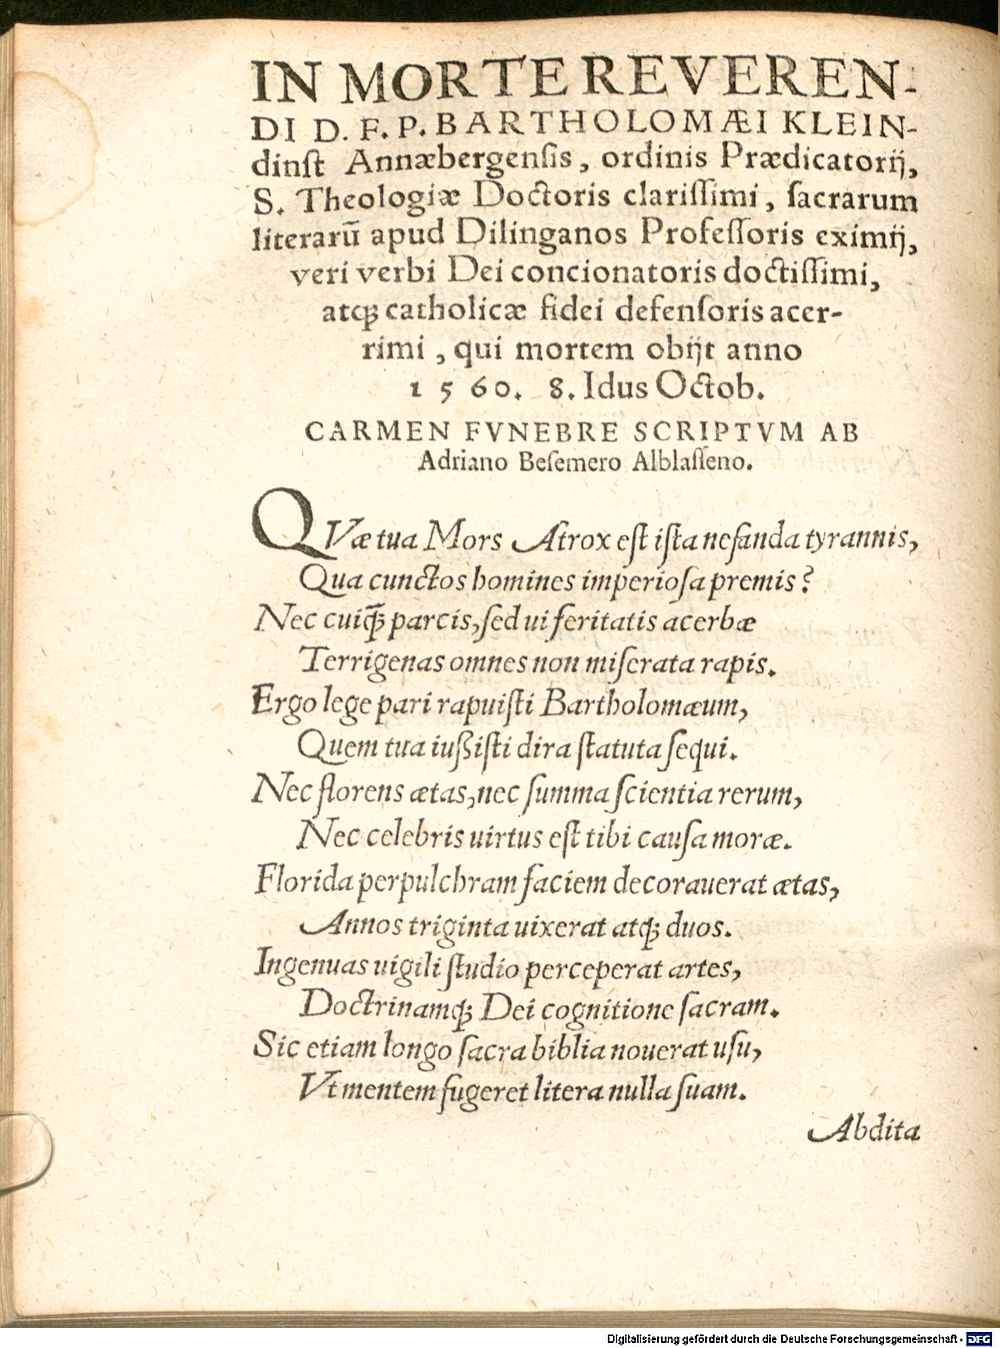 IN MORTE REVEREN-
DI D. F. P. BARTHOLOMÆI KLEIN-
dinſt Annæbergenſis, ordinis Prædicatorij,
S. Theologiæ Doctoris clariſſimi, ſacrarum
literarū apud Dilinganos Profeſſoris eximij,
veri verbi Dei concionatoris doctiſſimi,
atq; catholicæ fidei defenſoris acer-
rimi, qui mortem obijt anno
1560. 8. Idus Octob.
CARMEN FVNEBRE SCRIPTVM AB
Adriano Beſemero Alblaſſeno.
QVæ tua Mors Atrox eſt iſta nefanda tyrannis,
Qua cunctos homines imperioſa premis?
Nec cuiq̃; parcis, ſed ui feritatis acerbæ
Terrigenas omnes non miſerata rapis.
Ergo lege pari rapuiſti Bartholomæum,
Quem tua iußiſti dira ſtatuta ſequi.
Nec florens ætas, nec ſumma ſcientia rerum,
Nec celebris uirtus eſt tibi cauſa moræ.
Florida perpulchram faciem decorauerat ætas,
Annos triginta uixerat atq; duos.
Ingenuas uigili ſtudio perceperat artes,
Doctrinamq; Dei cognitione ſacram.
Sic etiam longo ſacra biblia nouerat uſu,
Vt mentem fugeret litera nulla ſuam.
Abdita
Digitalisierung gefördert durch die Deutsche Forschungsgemeinschaft - DFG